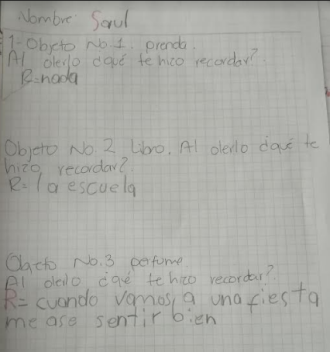 Nombre Saul
1-Objeto No.1. prenda.
Al olerlo ¿qué te hizo recordar?
R=nada
Objeto No.2 Libro. Al olerlo ¿qué te
hizo recordar?
R= la escuela
Objeto No.3 perfume
Al olerlo ¿qué te hizo recordar?
R= cuando vamos a una fiesta
me ase sentir bien